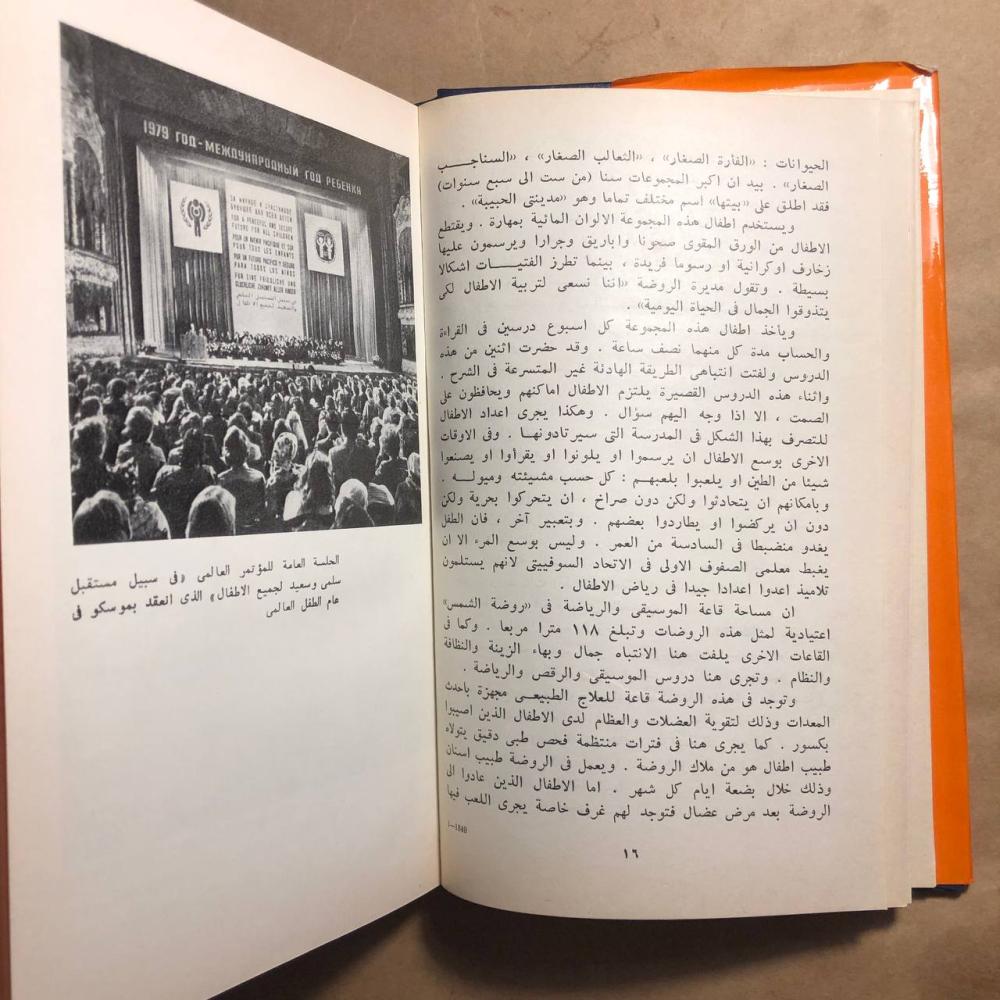 1979 ГОД-МЕЖДУНАРОДНЫЙ ГОД РЕБЕНКА
ЗА МИРНОЕ И СЧАСТЛИВОЕ
БУДУЩЕЕ ДЛЯ ВСЕХ ДЕТЕЙ
FOR A PEACEFUL AND SECURE
FUTURE FOR ALL CHILDREN
POUR UN AVENIR PACIFIQUE ET SUR
POUR TOUS LES ENFANTS
POR UN FUTURO PACIFICO Y SEGURO
PARA TODOS LOS NIÑOS
FÜR EINE FRIEDLICHE UND
GLÜCKLICHE ZUKUNFT ALLER KINDER
الجلسة العامة للمؤتمر العالمى «فى سبيل مستقبل
سلمى وسعيد لجميع الاطفال» الذى انعقد بموسكو فى
عام الطفل العالمى
الحيوانات : «الفارة الصغار» ، «الثعالب الصغار» ، «السناجب
الصغار» . بيد ان اكبر المجموعات سنا (من ست الى سبع سنوات)
فقد اطلق على «بيتها» اسم مختلف تماما وهو «مدينتى الحبيبة» .
ويستخدم اطفال هذه المجموعة الالوان المائية بمهارة . ويقتطع
الاطفال من الورق المقوى صحونا واباريق وجرارا ويرسمون عليها
زخارف اوكرانية او رسوما فريدة ، بينما تطرز الفتيات اشكالا
بسيطة . وتقول مديرة الروضة «اننا نسعى لتربية الاطفال لكى
يتذوقوا الجمال فى الحياة اليومية» .
وياخذ اطفال هذه المجموعة كل اسبوع درسين فى القراءة
والحساب مدة كل منهما نصف ساعة . وقد حضرت اثنين من هذه
الدروس ولفتت انتباهى الطريقة الهادئة غير المتسرعة فى الشرح .
واثناء هذه الدروس القصيرة يلتزم الاطفال اماكنهم ويحافظون على
الصمت ، الا اذا وجه اليهم سؤال . وهكذا يجرى اعداد الاطفال
للتصرف بهذا الشكل فى المدرسة التى سيرتادونها . وفى الاوقات
الاخرى بوسع الاطفال ان يرسموا او يلونوا او يقرأوا او يصنعوا
شيئا من الطين او يلعبوا بلعبهم : كل حسب مشيئته وميوله .
وبامكانهم ان يتحادثوا ولكن دون صراخ ، ان يتحركوا بحرية ولكن
دون ان يركضوا او يطاردوا بعضهم . وبتعبير آخر ، فان الطفل
يغدو منضبطا فى السادسة من العمر . وليس بوسع المرء الا ان
يغبط معلمى الصفوف الاولى فى الاتحاد السوفييتى لانهم يستلمون
تلاميذ اعدوا اعدادا جيدا فى رياض الاطفال .
ان مساحة قاعة الموسيقى والرياضة فى «روضة الشمس»
اعتيادية لمثل هذه الروضات وتبلغ ١١٨ مترا مربعا . وكما فى
القاعات الاخرى يلفت هنا الانتباه جمال وبهاء الزينة والنظافة
والنظام . وتجرى هنا دروس الموسيقى والرقص والرياضة .
وتوجد فى هذه الروضة قاعة للعلاج الطبيعى مجهزة باحدث
المعدات وذلك لتقوية العضلات والعظام لدى الاطفال الذين اصيبوا
بكسور . كما يجرى هنا فى فترات منتظمة فحص طبى دقيق يتولاه
طبيب اطفال هو من ملاك الروضة . ويعمل فى الروضة طبيب اسنان
وذلك خلال بضعة ايام كل شهر . اما الاطفال الذين عادوا الى
الروضة بعد مرض عضال فتوجد لهم غرف خاصة يجرى اللعب فيها
1—1840
١٦